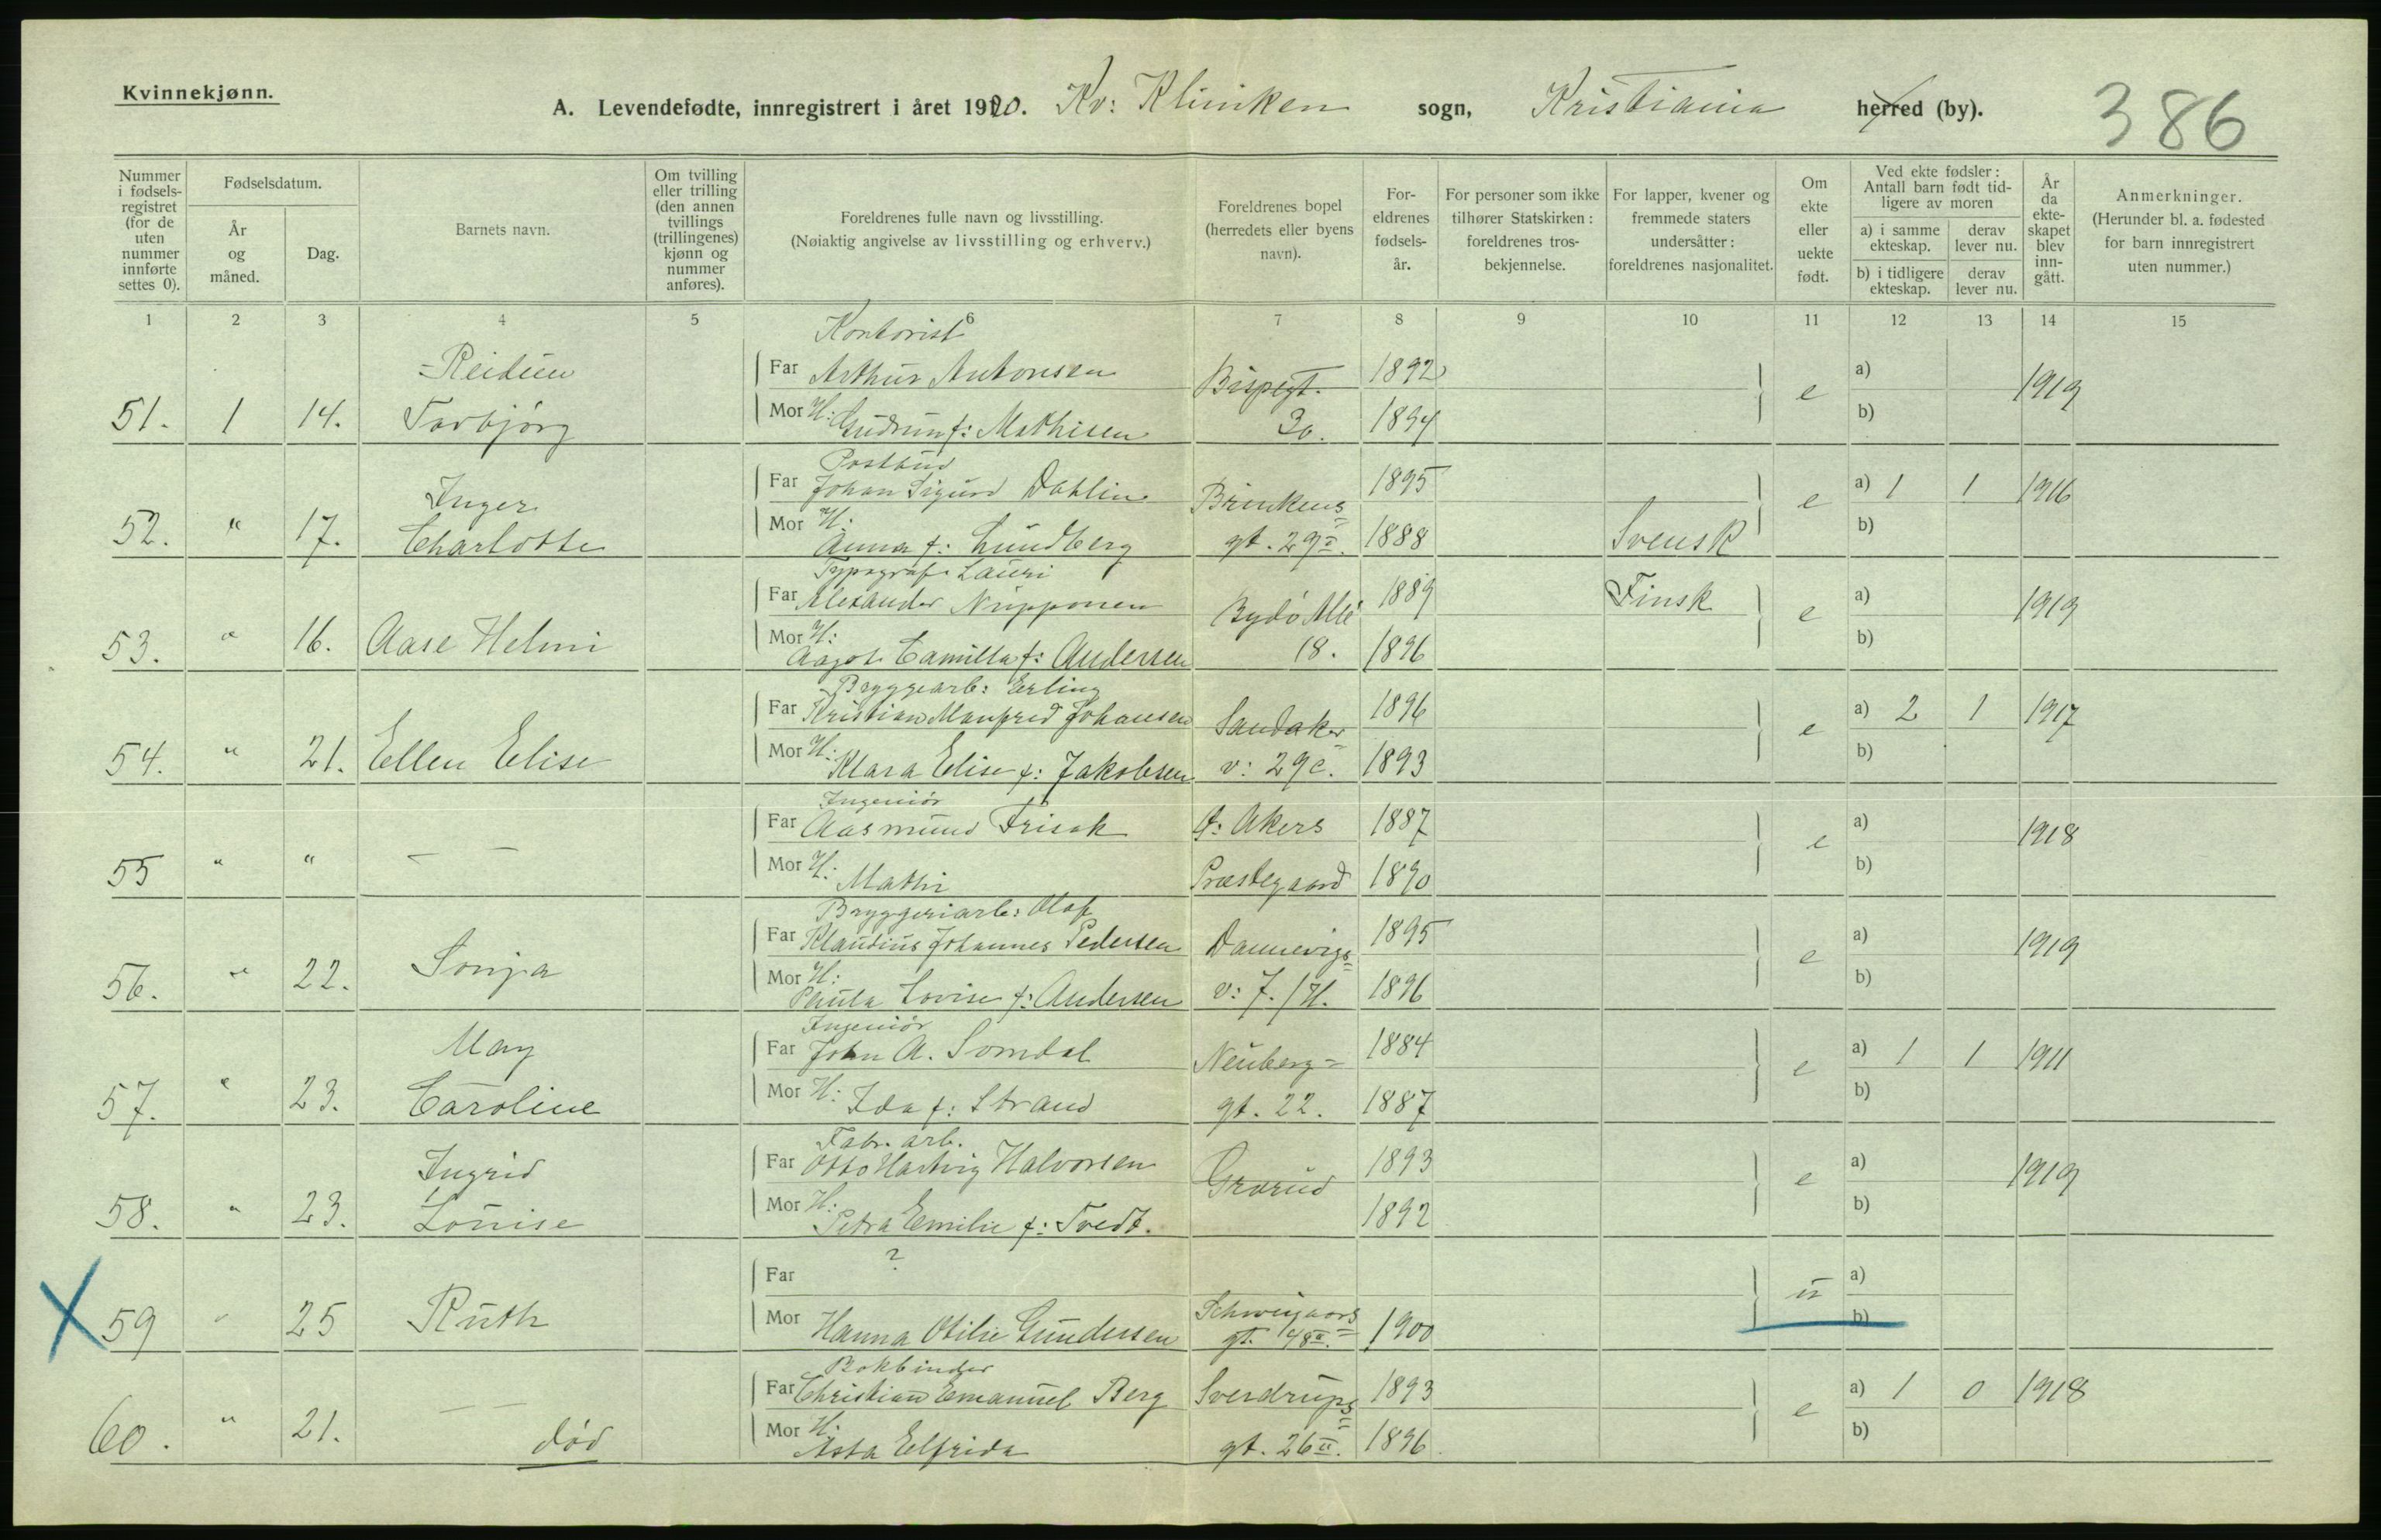 Kvinnekjønn.
A. Levendefødte, innregistrert i året 1920. Kv: Kliniken sogn, Kristiania herred (by).
386
Nummer i fødsels-registret (for de uten nummer innførte settes 0).
Fødselsdatum.
År og måned.
Dag.
Barnets navn.
Om tvilling eller trilling (den annen tvillings (trillingenes) kjønn og nummer anføres).
Foreldrenes fulle navn og livsstilling.
(Nøiaktig angivelse av livsstilling og erhverv.)
Foreldrenes bopel (herredets eller byens navn).
For-eldrenes fødsels-år.
For personer som ikke tilhører Statskirken: foreldrenes tros-bekjennelse.
For lapper, kvener og fremmede staters undersåtter: foreldrenes nasjonalitet.
Om ekte eller uekte født.
Ved ekte fødsler: Antall barn født tid-ligere av moren
a) i samme ekteskap.
derav lever nu.
b) i tidligere ekteskap.
derav lever nu.
År da ekte-skapet blev inn-gått.
Anmerkninger.
(Herunder bl. a. fødested for barn innregistrert uten nummer.)
1 2 3 4 5 6 7 8 9 10 11 12 13 14 15
Kontorist
Reidun Far Arthur Antonsen Bispegt. 1892 e a) 1919
51. 1 14. Torbjørg Mor H: Gudrun f: Mathisen 30. 1894 b)
Postbud
Inger Far Johan Sigurd Dahlin Brinkens 1895 e a) 1 1 1916
52. " 17. Charlotte Mor H: Anna f: Lundberg gt. 29 1888 Svensk b)
Typograf Lauri
Far Alexander Nupponen Bygdø Allé 1889 Finsk e a) 1919
53. " 16. Aase Helmi Mor H: Aagot Camilla f: Andersen 18. 1896 b)
Bryggearb: Erling
Far Kristian Manfred Johansen Sandaker 1896 e a) 2 1 1917
54. " 21. Ellen Elise Mor H: Klara Elise f: Jakobsen v: 29c. 1893 b)
Ingeniør
Far Aasmund Frisak A: Akers 1887 e a) 1918
55 " " — — Mor H: Mathi Præstegaard 1890 b)
Bryggeriarb: Olaf
Far Klaudius Johannes Pedersen Dannevigs= 1895 e a) 1919
56. " 22. Sonja Mor H: Paula Lovise f: Andersen v: 7./H. 1896 b)
Ingeniør
May Far John A. Somdal Neuberg= 1884 e a) 1 1 1911
57. " 23. Caroline Mor H: Ida f: Strand gt. 22. 1887 b)
Fabr. arb.
Ingrid Far Otto Hartvig Halvorsen Grorud 1893 e a) 1919
58. " 23. Louise Mor H: Petra Emilie f: Tvedt. 1892 b)
?
Far u a)
X 59 " 25 Ruth Mor Hanna Otilie Gundersen Schweigaards= gt. 48II. 1900 b)
Bokbinder
Far Christian Emanuel Berg Sverdrups= 1893 e a) 1 0 1918
60. " 21. — — død Mor H: Asta Elfrida gt. 26II. 1896 b)